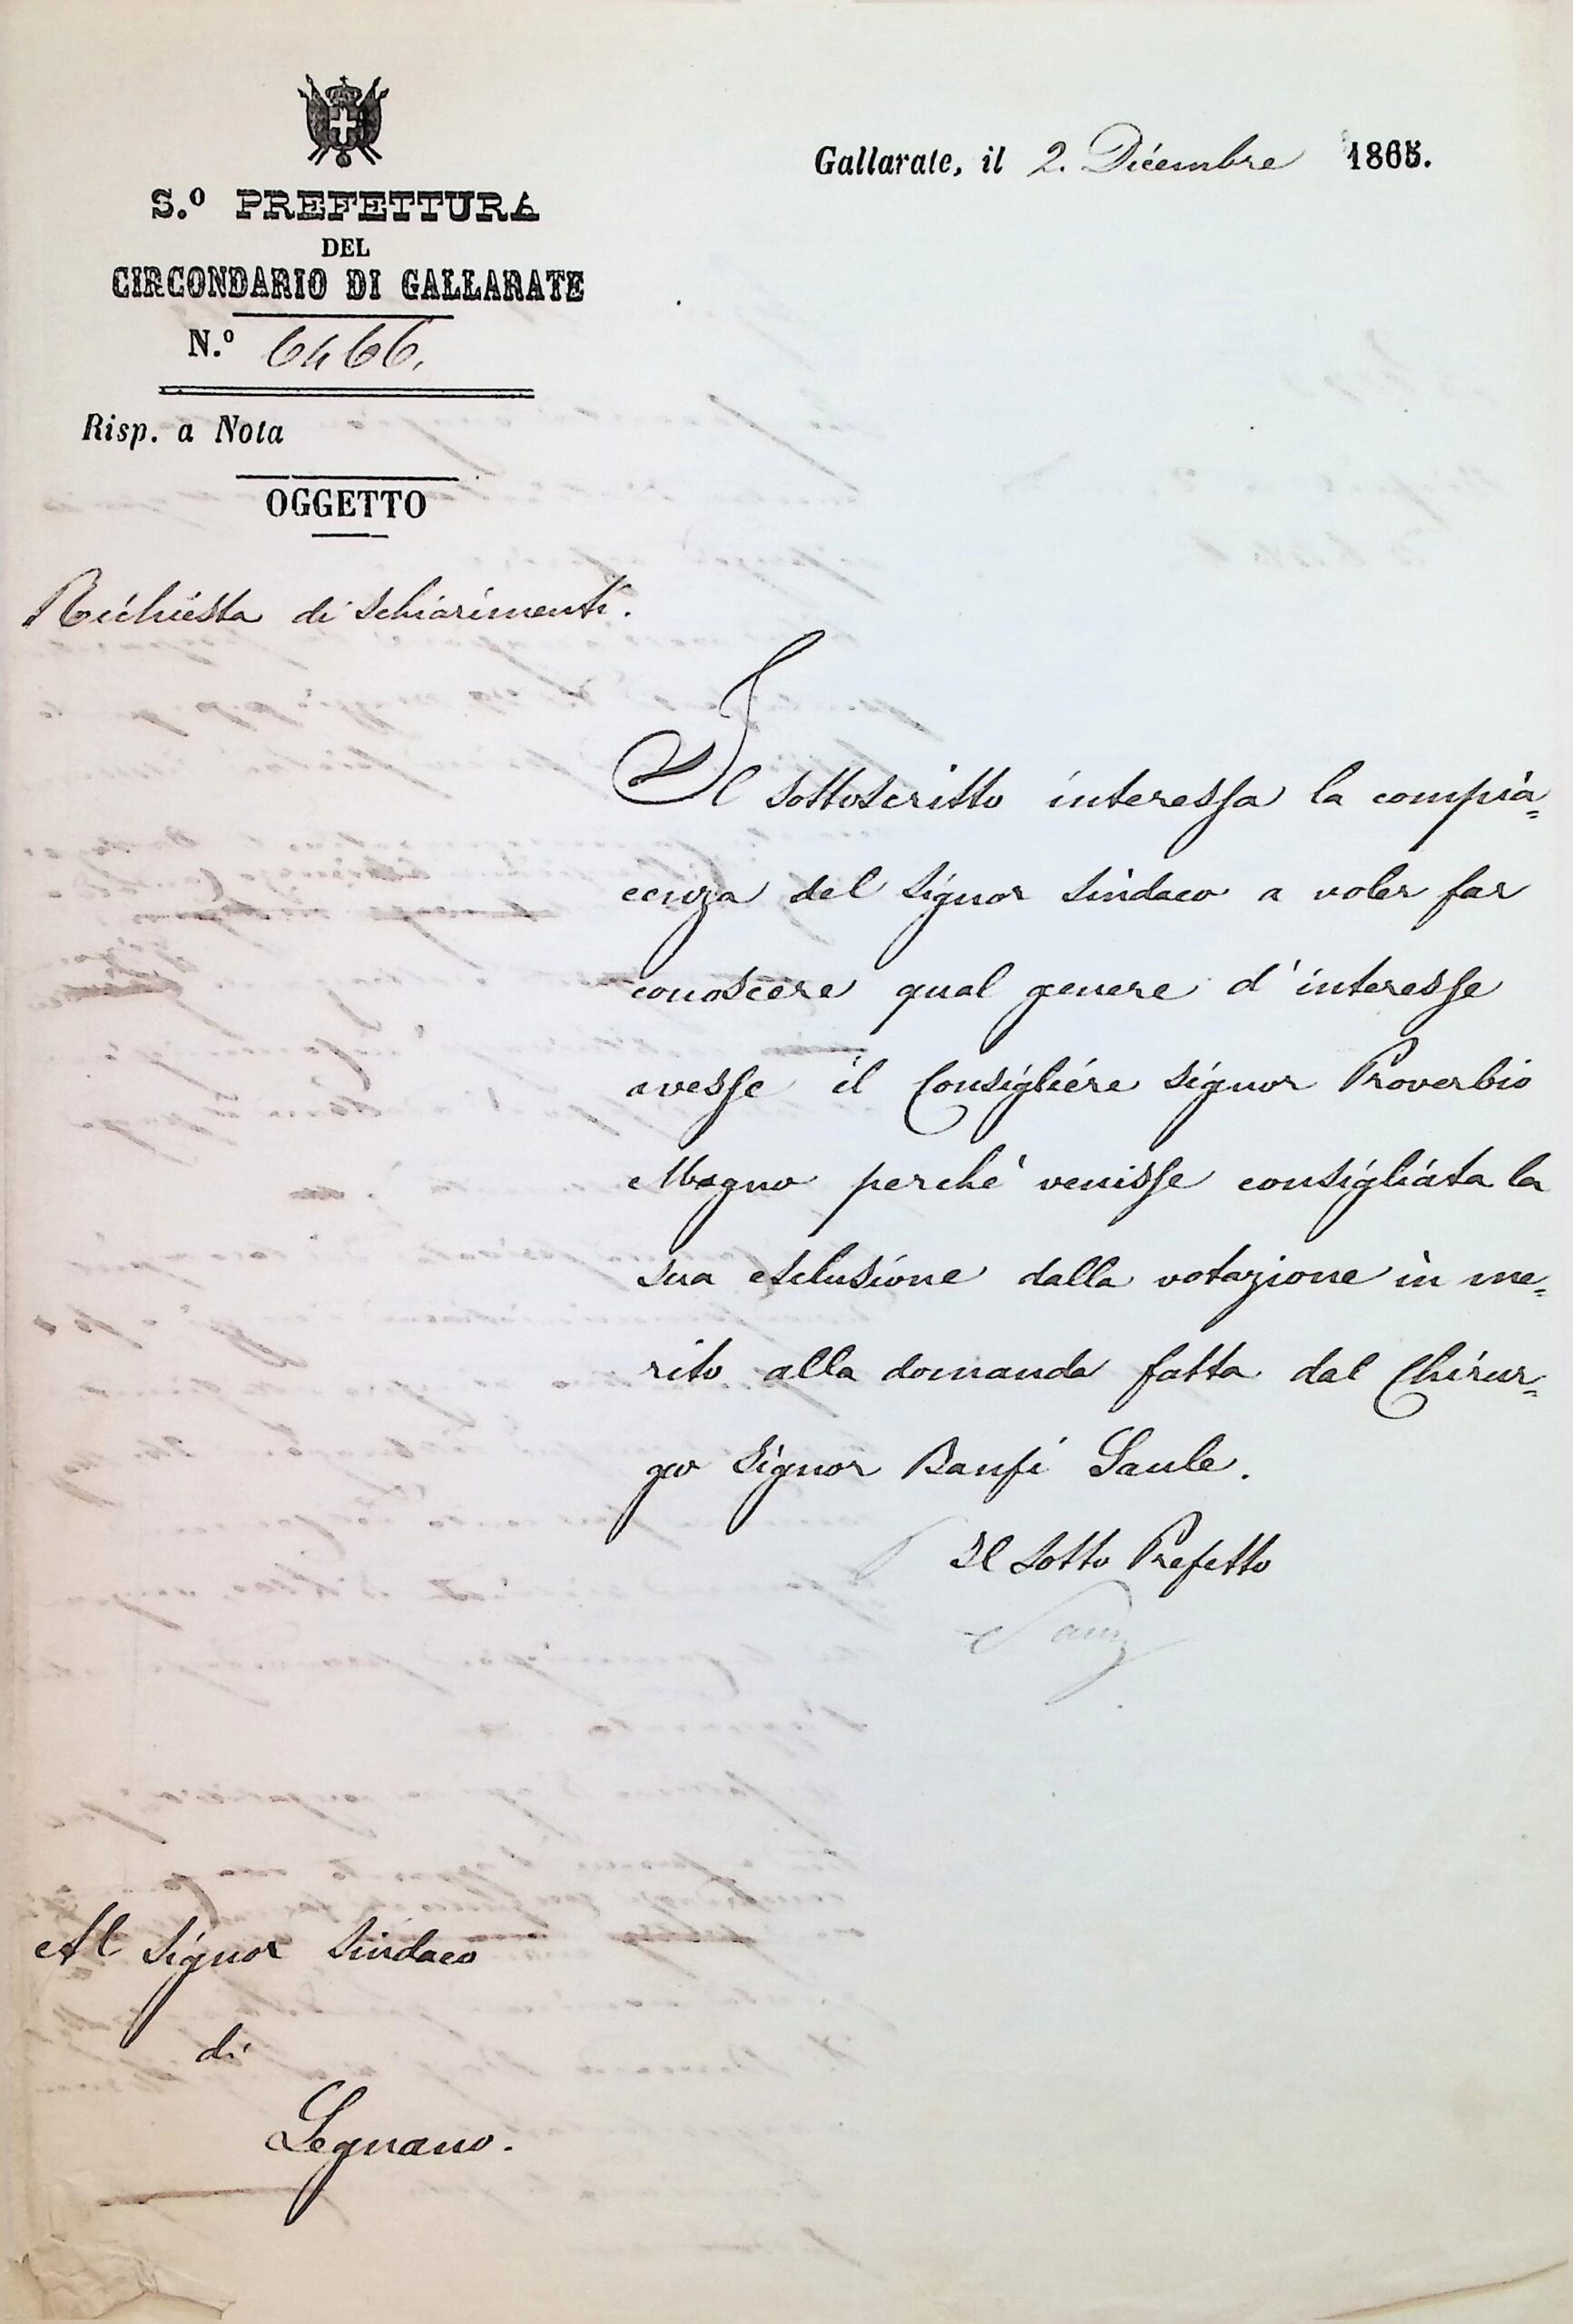 S.º PREFETTURA
DEL
CIRCONDARIO DI GALLARATE
N.º 6466.
Risp. a Nota
OGGETTO
Richiesta di schiarimenti.
Gallarate, il 2. Dicembre 1865.
Il sottoscritto interessa la compia=
cenza del Signor Sindaco a voler far
conoscere qual genere d'interesse
avesse il Consigliere Signor Proverbio
Magno perchè venisse consigliata la
sua esclusione dalla votazione in me=
rito alla domanda fatta dal Chirur=
go Signor Banfi Saule.
Il Sotto Prefetto
Al Signor Sindaco
di
Legnano.